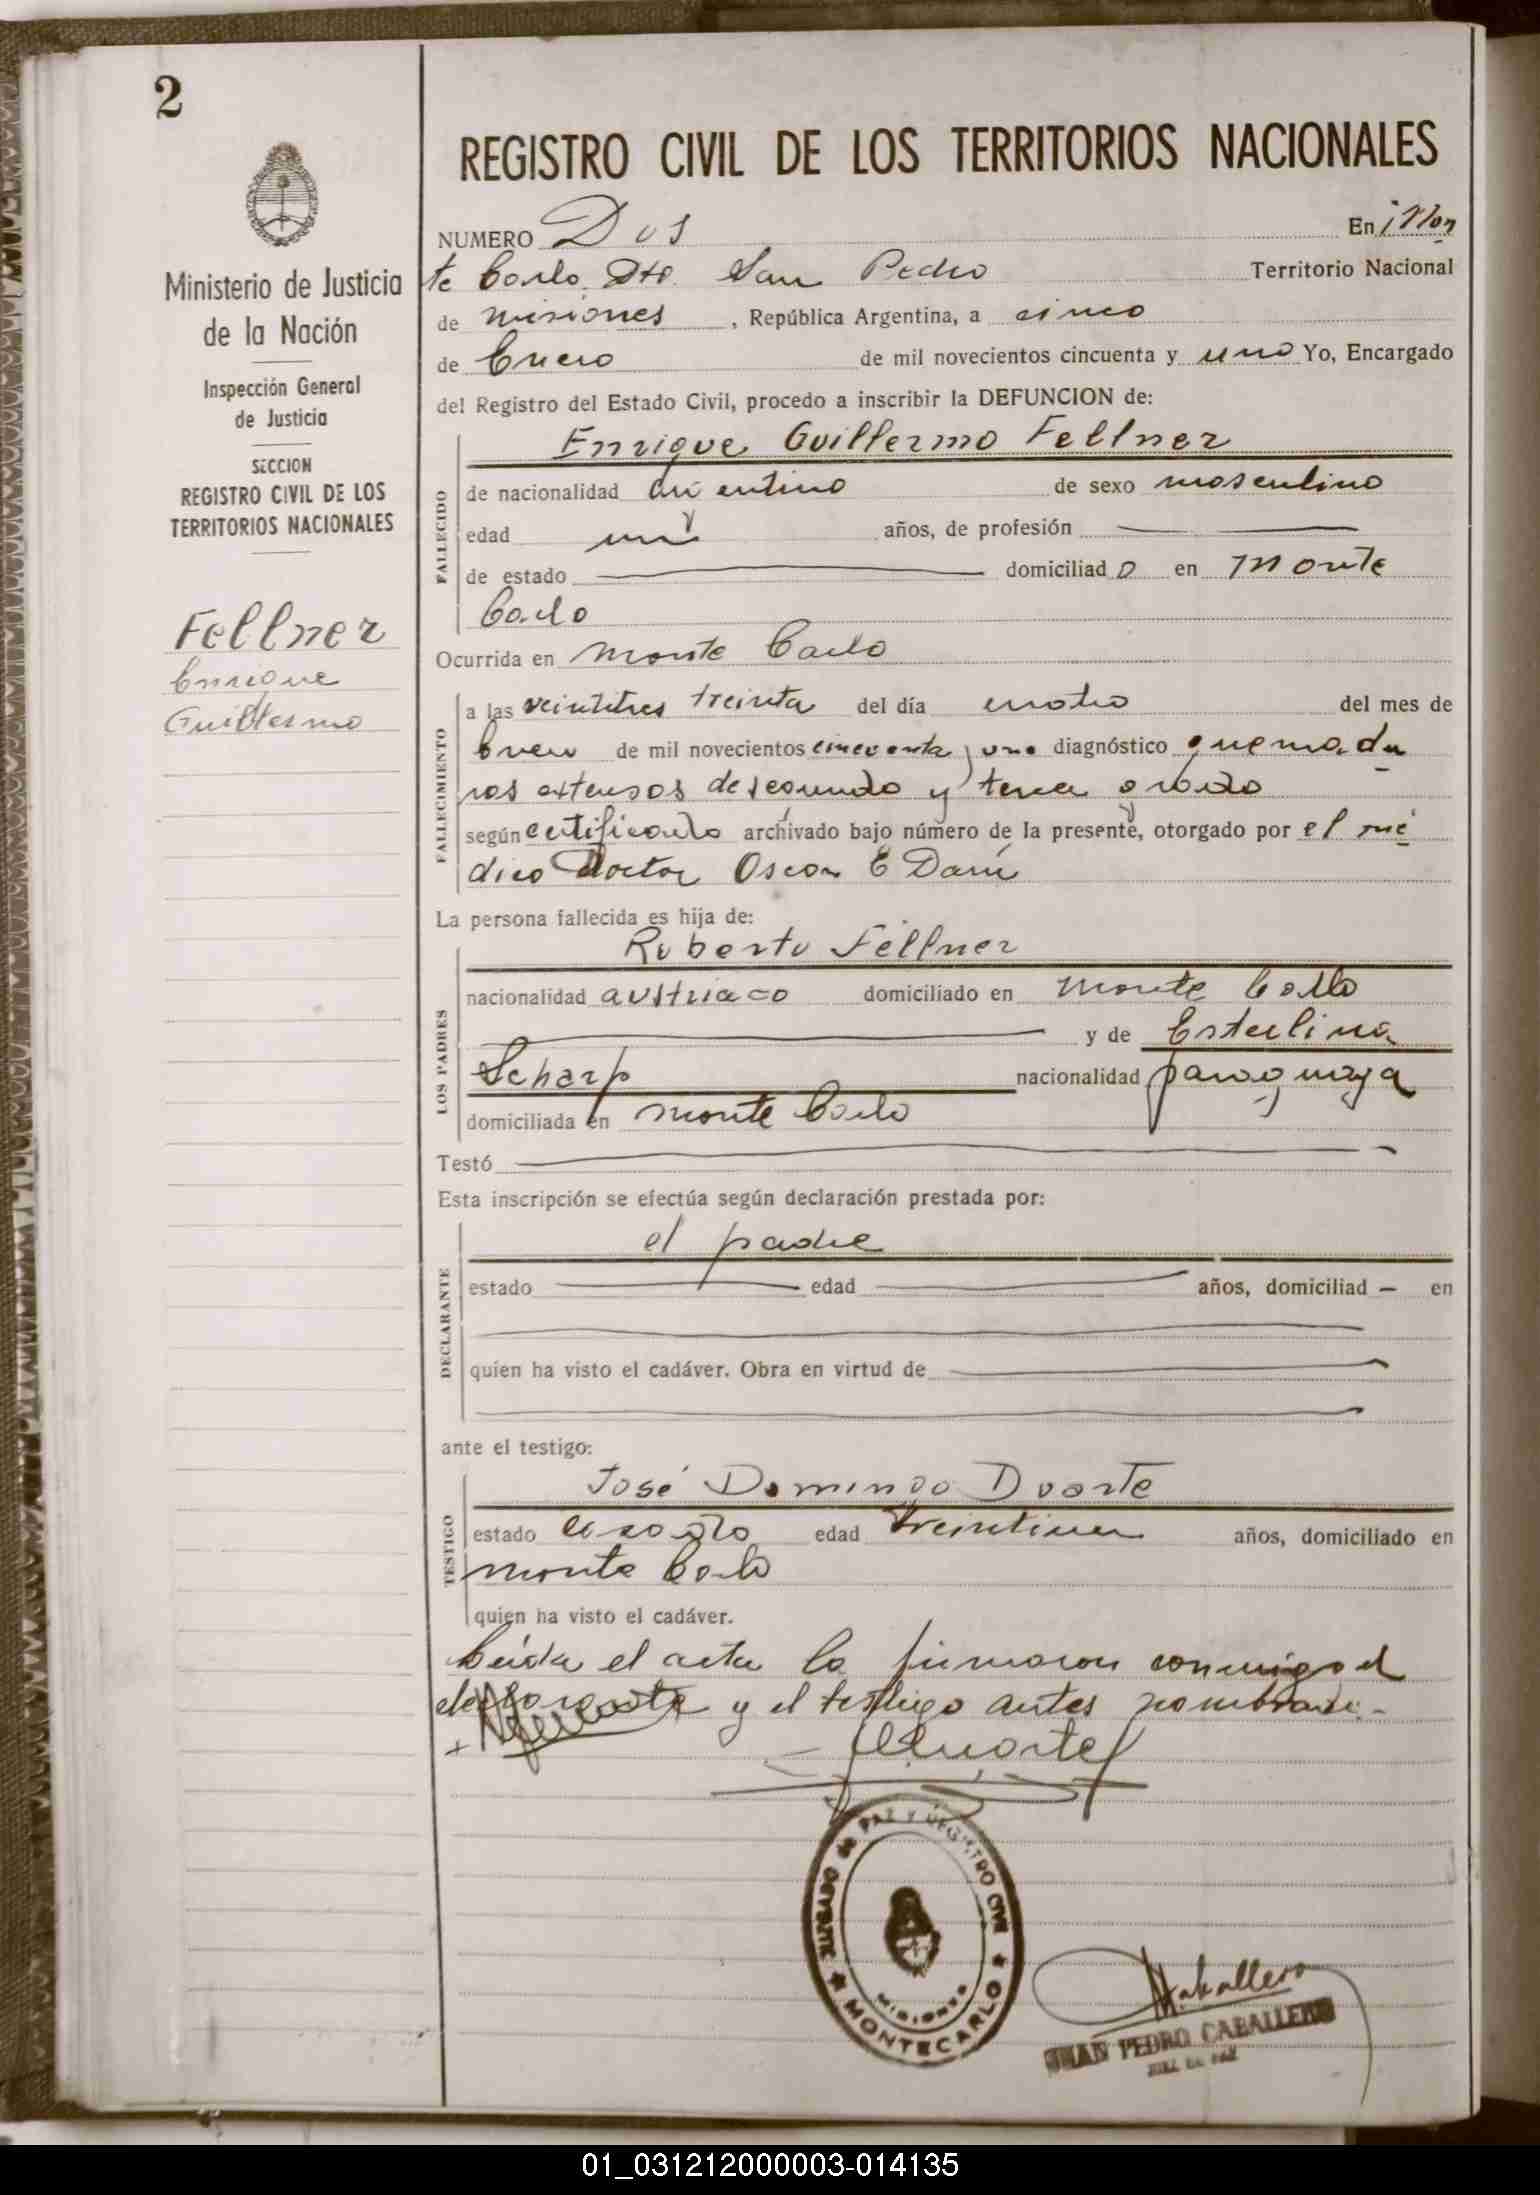 2
REGISTRO CIVIL DE LOS TERRITORIOS NACIONALES
NUMERO Dos En Mon
te Carlo Dto. San Pedro Territorio Nacional
de misiones, República Argentina, a cinco
de Enero de mil novecientos cincuenta y uno Yo, Encargado
del Registro del Estado Civil, procedo a inscribir la DEFUNCION de:
Enrique Guillermo Fellner
FALLECIDO
de nacionalidad argentino de sexo masculino
edad un años, de profesión
de estado domiciliado en Monte
Carlo
Ocurrida en Monte Carlo
FALLECIMIENTO
a las veintitres treinta del día cuatro del mes de
Enero de mil novecientos cincuenta y uno diagnóstico quemadu
ras extensas de segundo y tercer grado
según certificado archivado bajo número de la presente, otorgado por el mé
dico Doctor Oscar E Darú
La persona fallecida es hija de:
Roberto Fellner
LOS PADRES
nacionalidad austriaco domiciliado en Monte Carlo
y de Esterlina
Scharf nacionalidad paraguaya
domiciliada en Monte Carlo
Testó
Esta inscripción se efectúa según declaración prestada por:
el padre
DECLARANTE
estado edad años, domiciliad — en
quien ha visto el cadáver. Obra en virtud de
ante el testigo:
José Domingo Duarte
TESTIGO
estado casado edad treintiun años, domiciliado en
Monte Carlo
quien ha visto el cadáver.
Leída el acta la firmaron conmigo el
declarante y el testigo antes nombrado.-
JDuarte
Ministerio de Justicia
de la Nación
Inspección General
de Justicia
SECCION
REGISTRO CIVIL DE LOS
TERRITORIOS NACIONALES
Fellner
Enrique
Guillermo
JUZGADO de PAZ Y REGISTRO CIVIL
MISIONES
MONTECARLO
Caballero
JUAN PEDRO CABALLERO
JUEZ DE PAZ
01_031212000003-014135